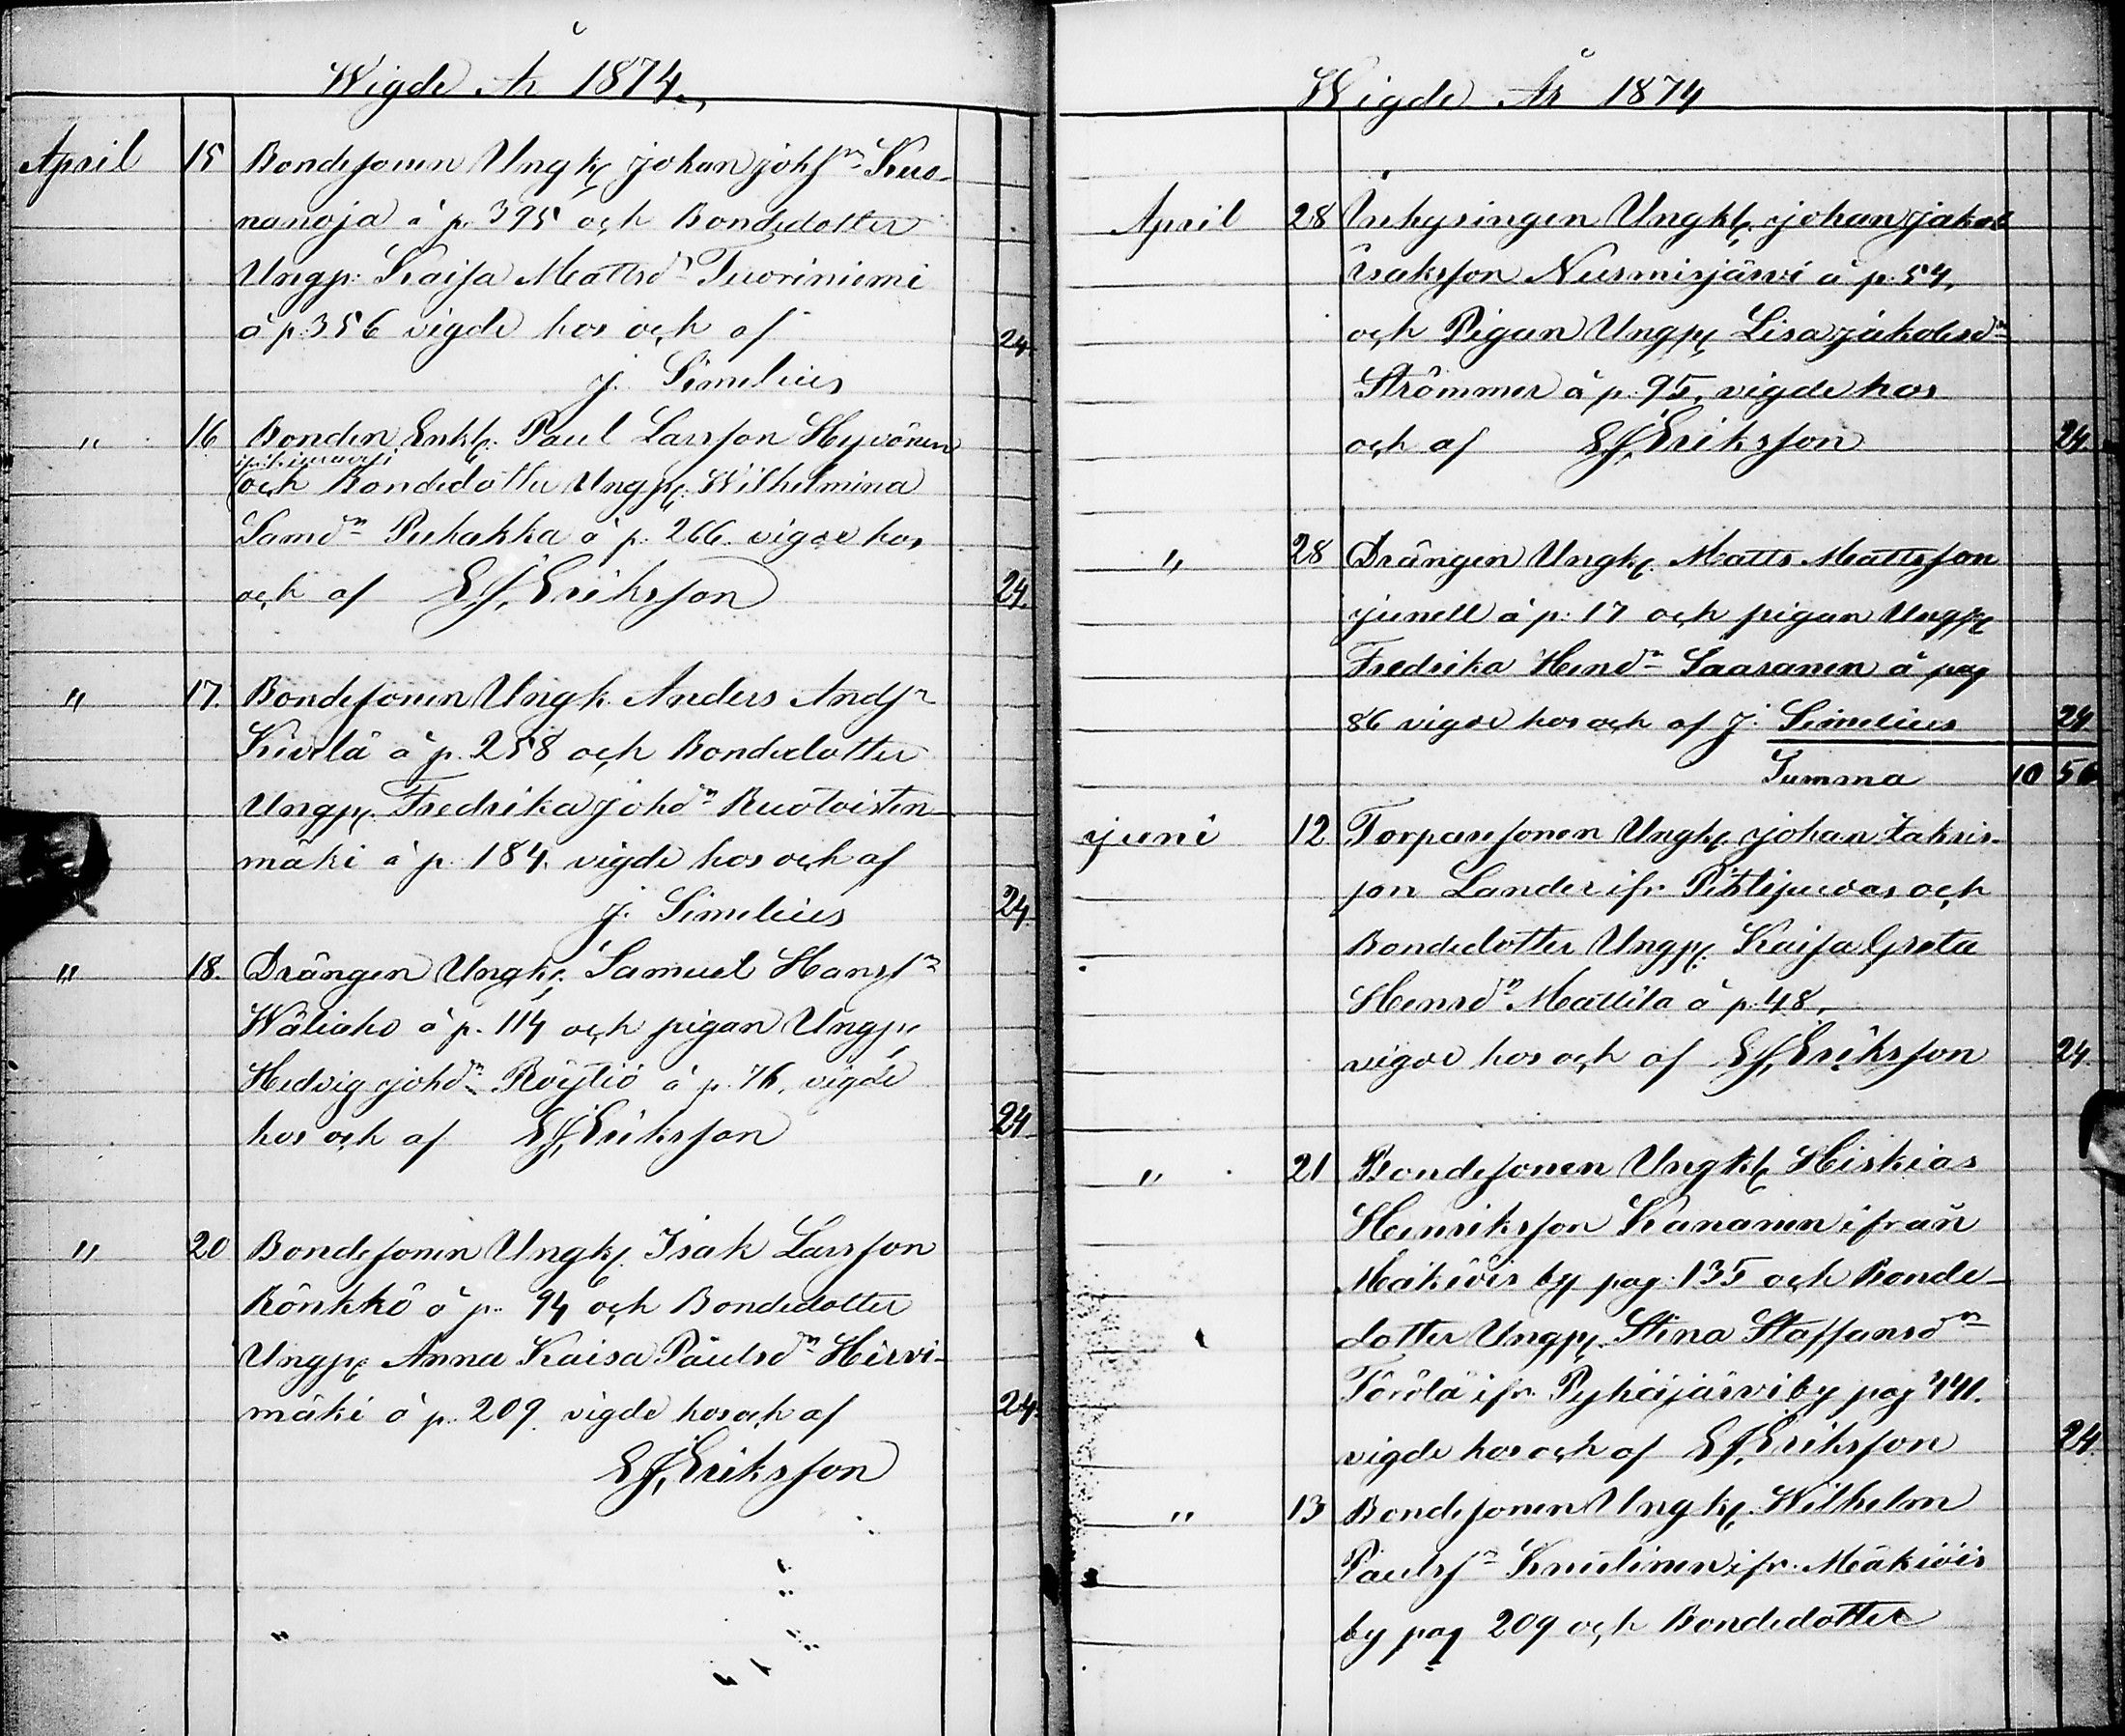 Wigde År 1874.
April 15 Bondesonen Ungk. Johan Johsn Kuo-
nanoja å p. 395 och Bondedotter
Ungp: Kaisa Mattsdn Tuoriniemi
å p. 356 vigde hos och af 24
J. Simelius
" 16 Bonden Enkl. Paul Larsson Hyvönen
och Bondedotter Ungp. Wilhelmina
Samdn Puhakka å p. 266. vigde hos
och af E.J. Eriksson 24.
" 17. Bondesonen Ungk. Anders Andsn
å p. 258 och Bondedotter
Ungp. Fredrika Johdn Ruotoisten-
mäki å p. 184. vigde hos och af
J. Simelius 24.
" 18. Drängen Ungk. Samuel Hanssn
Wäliaho å p. 114 och pigan Ungp.
Hedvig Johdn Röytiö å p. 76. vigde
hos och af E.J. Eriksson 24
" 20 Bondesonen Ungk. Isak Larsson
Rönkkö å p. 94 och Bondedotter
Ungp. Anna Kaisa Paulsdn Hirvi-
mäki å p. 209. vigde hos och af 24.
E.J. Eriksson
Wigde År 1874
April 28 Inhysingen Ungk. Johan Jakob
Isaksson Nurmisjärvi å p. 54,
och Pigan Ungp. Lisa Jakobsdn
Strömmer å p. 95, vigde hos
och af E.J. Eriksson 24.
" 28 Drängen Ungk. Matts Mattsson
Junell å p. 17 och pigan Ungp.
Fredrika Hendn Saasanen å pag
86 vigde hos och af J. Simelius 24
Summa 10 56
Juni 12 Torparesonen Ungk. Johan Zakris-
son Lander ifr. Pihtipudas och
Bondedotter Ungp. Kaisa Greta
Hensdn Mattila å p. 48,
vigde hos och af E.J. Eriksson 24.
" 21 Bondesonen Ungk. Hiskias
Henriksson Kananen ifrån
Mäkiöis by pag. 135 och Bonde-
dotter Ungp. Stina Staffansdn
Törölä ifr. Pyhäjärvi by pag 441.
vigde hos och af E.J. Eriksson 24.
" 13 Bondesonen Ungk. Wilhelm
Paulssn Knuutinen ifr. Mäkiöis
by pag 209 och Bondedotter